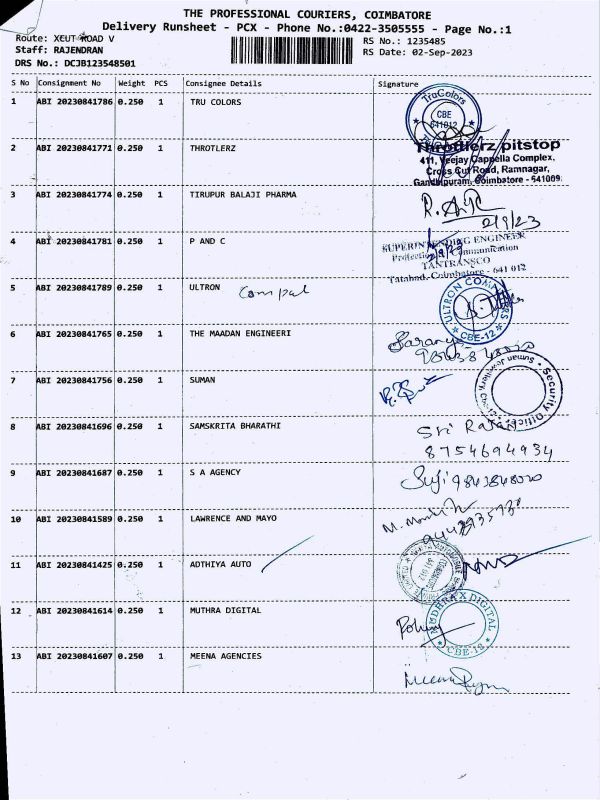 THE PROFESSIONAL COURIERS, COIMBATORE
Delivery Runsheet - PCX - Phone No.:0422-3505555 - Page No.:1
Route: XEUT ROAD V
RS No.: 1235485
Staff: RAJENDRAN
RS Date: 02-Sep-2023
DRS No.: DCJB123548501
S No Consignment No Weight PCS Consignee Details Signature
1 ABI 20230841786 0.250 1 TRU COLORS
TruColors
CBE
641012
2 ABI 20230841771 0.250 1 THROTLERZ
Throttlerz pitstop
411, Veejay Cappella Complex,
Cross Cut Road, Ramnagar,
Gandhipuram, Coimbatore - 641009.
3 ABI 20230841774 0.250 1 TIRUPUR BALAJI PHARMA
2/9/23
4 ABI 20230841781 0.250 1 P AND C
SUPERINTENDING ENGINEER
Protection Communication
TANTRANSCO
Tatabad, Coimbatore - 641 012
5 ABI 20230841789 0.250 1 ULTRON
ULTRON
CBE-12
6 ABI 20230841765 0.250 1 THE MAADAN ENGINEERI
7 ABI 20230841756 0.250 1 SUMAN
Security Officer
Suman
8 ABI 20230841696 0.250 1 SAMSKRITA BHARATHI
Sri
8754694934
9 ABI 20230841687 0.250 1 S A AGENCY
Suji
10 ABI 20230841589 0.250 1 LAWRENCE AND MAYO
11 ABI 20230841425 0.250 1 ADTHIYA AUTO
12 ABI 20230841614 0.250 1 MUTHRA DIGITAL
DIGITAL
13 ABI 20230841607 0.250 1 MEENA AGENCIES
Meena